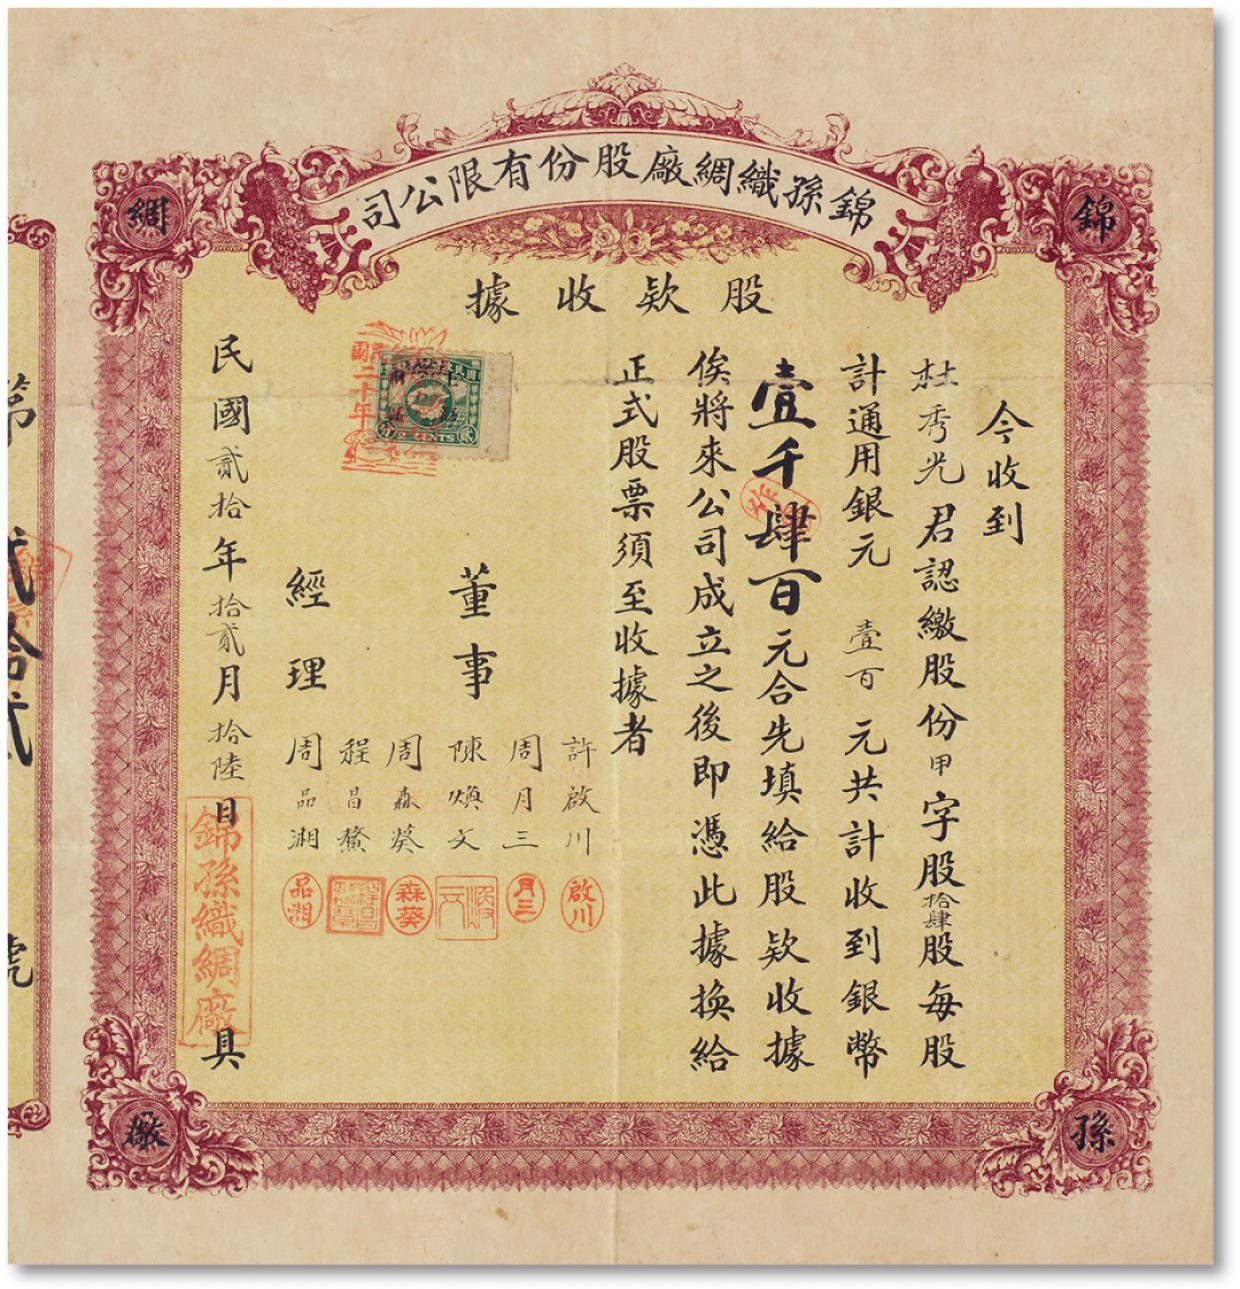 錦孫織綢廠股份有限公司
錦
孫
綢
廠
股款收據
今收到
杜秀光君認繳股份甲字股拾肆股每股
計通用銀元壹百元共計收到銀幣
壹千肆百元合先填給股款收據
俟將來公司成立之後即憑此據換給
正式股票須至收據者
董事
許啟川
周月三
陳煥文
周森葵
程昌鰲
經理
周品湘
啟川
月三
森葵
品湘
民國貳拾年拾貳月拾陸日
錦孫織綢廠
具
民國二十年
2 CENTS
第貳拾貳號